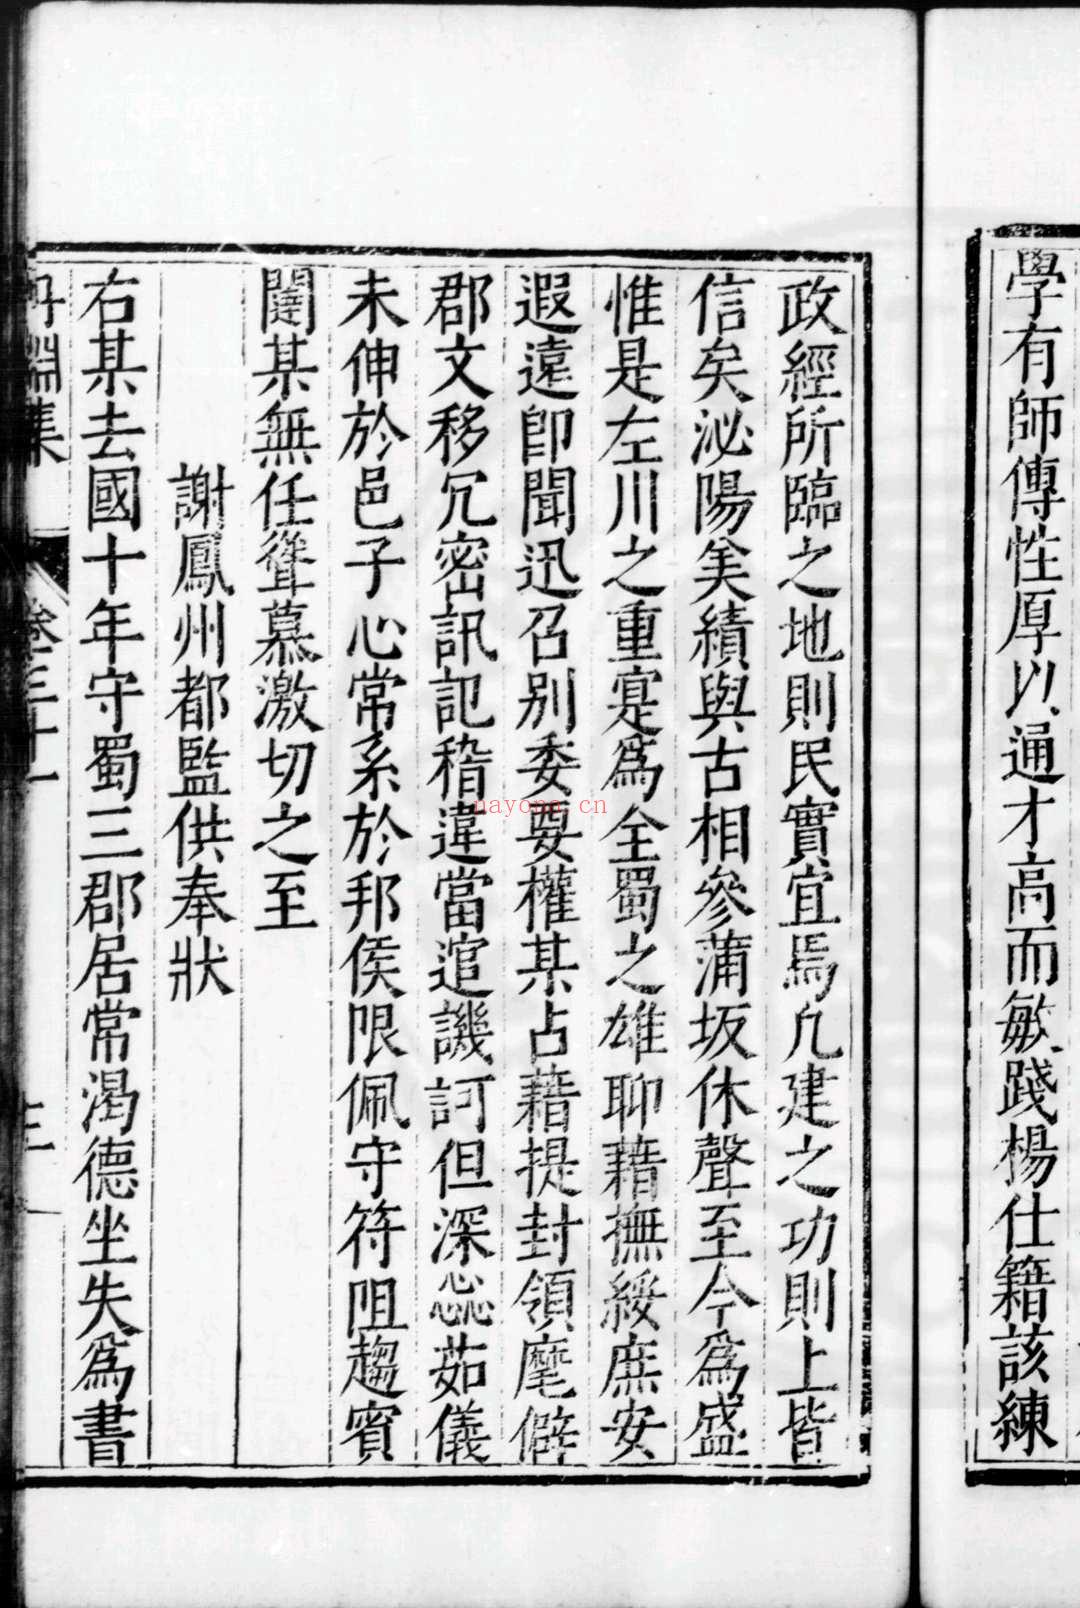 學有師傳性厚以通才高而敏踐楊仕籍該練
政經所臨之地則民實宜焉凡建之功則上皆
信矣泌陽美績與古相參蒲坂休聲至今為盛
惟是左川之重寔為全蜀之雄聊藉撫綏庶安
遐遠卽聞迅召别委要權某占藉提封領麾僻
郡文移冗密訊記稽違當逭譏訶但深惢茹儀
未伸於邑子心常系於邦侯限佩守符阻趨賓
闥某無任聳慕激切之至
謝鳳州都監供奉狀
右某去國十年守蜀三郡居常渴德坐失為書
丹淵集 卷三十一 三
nayona.cn